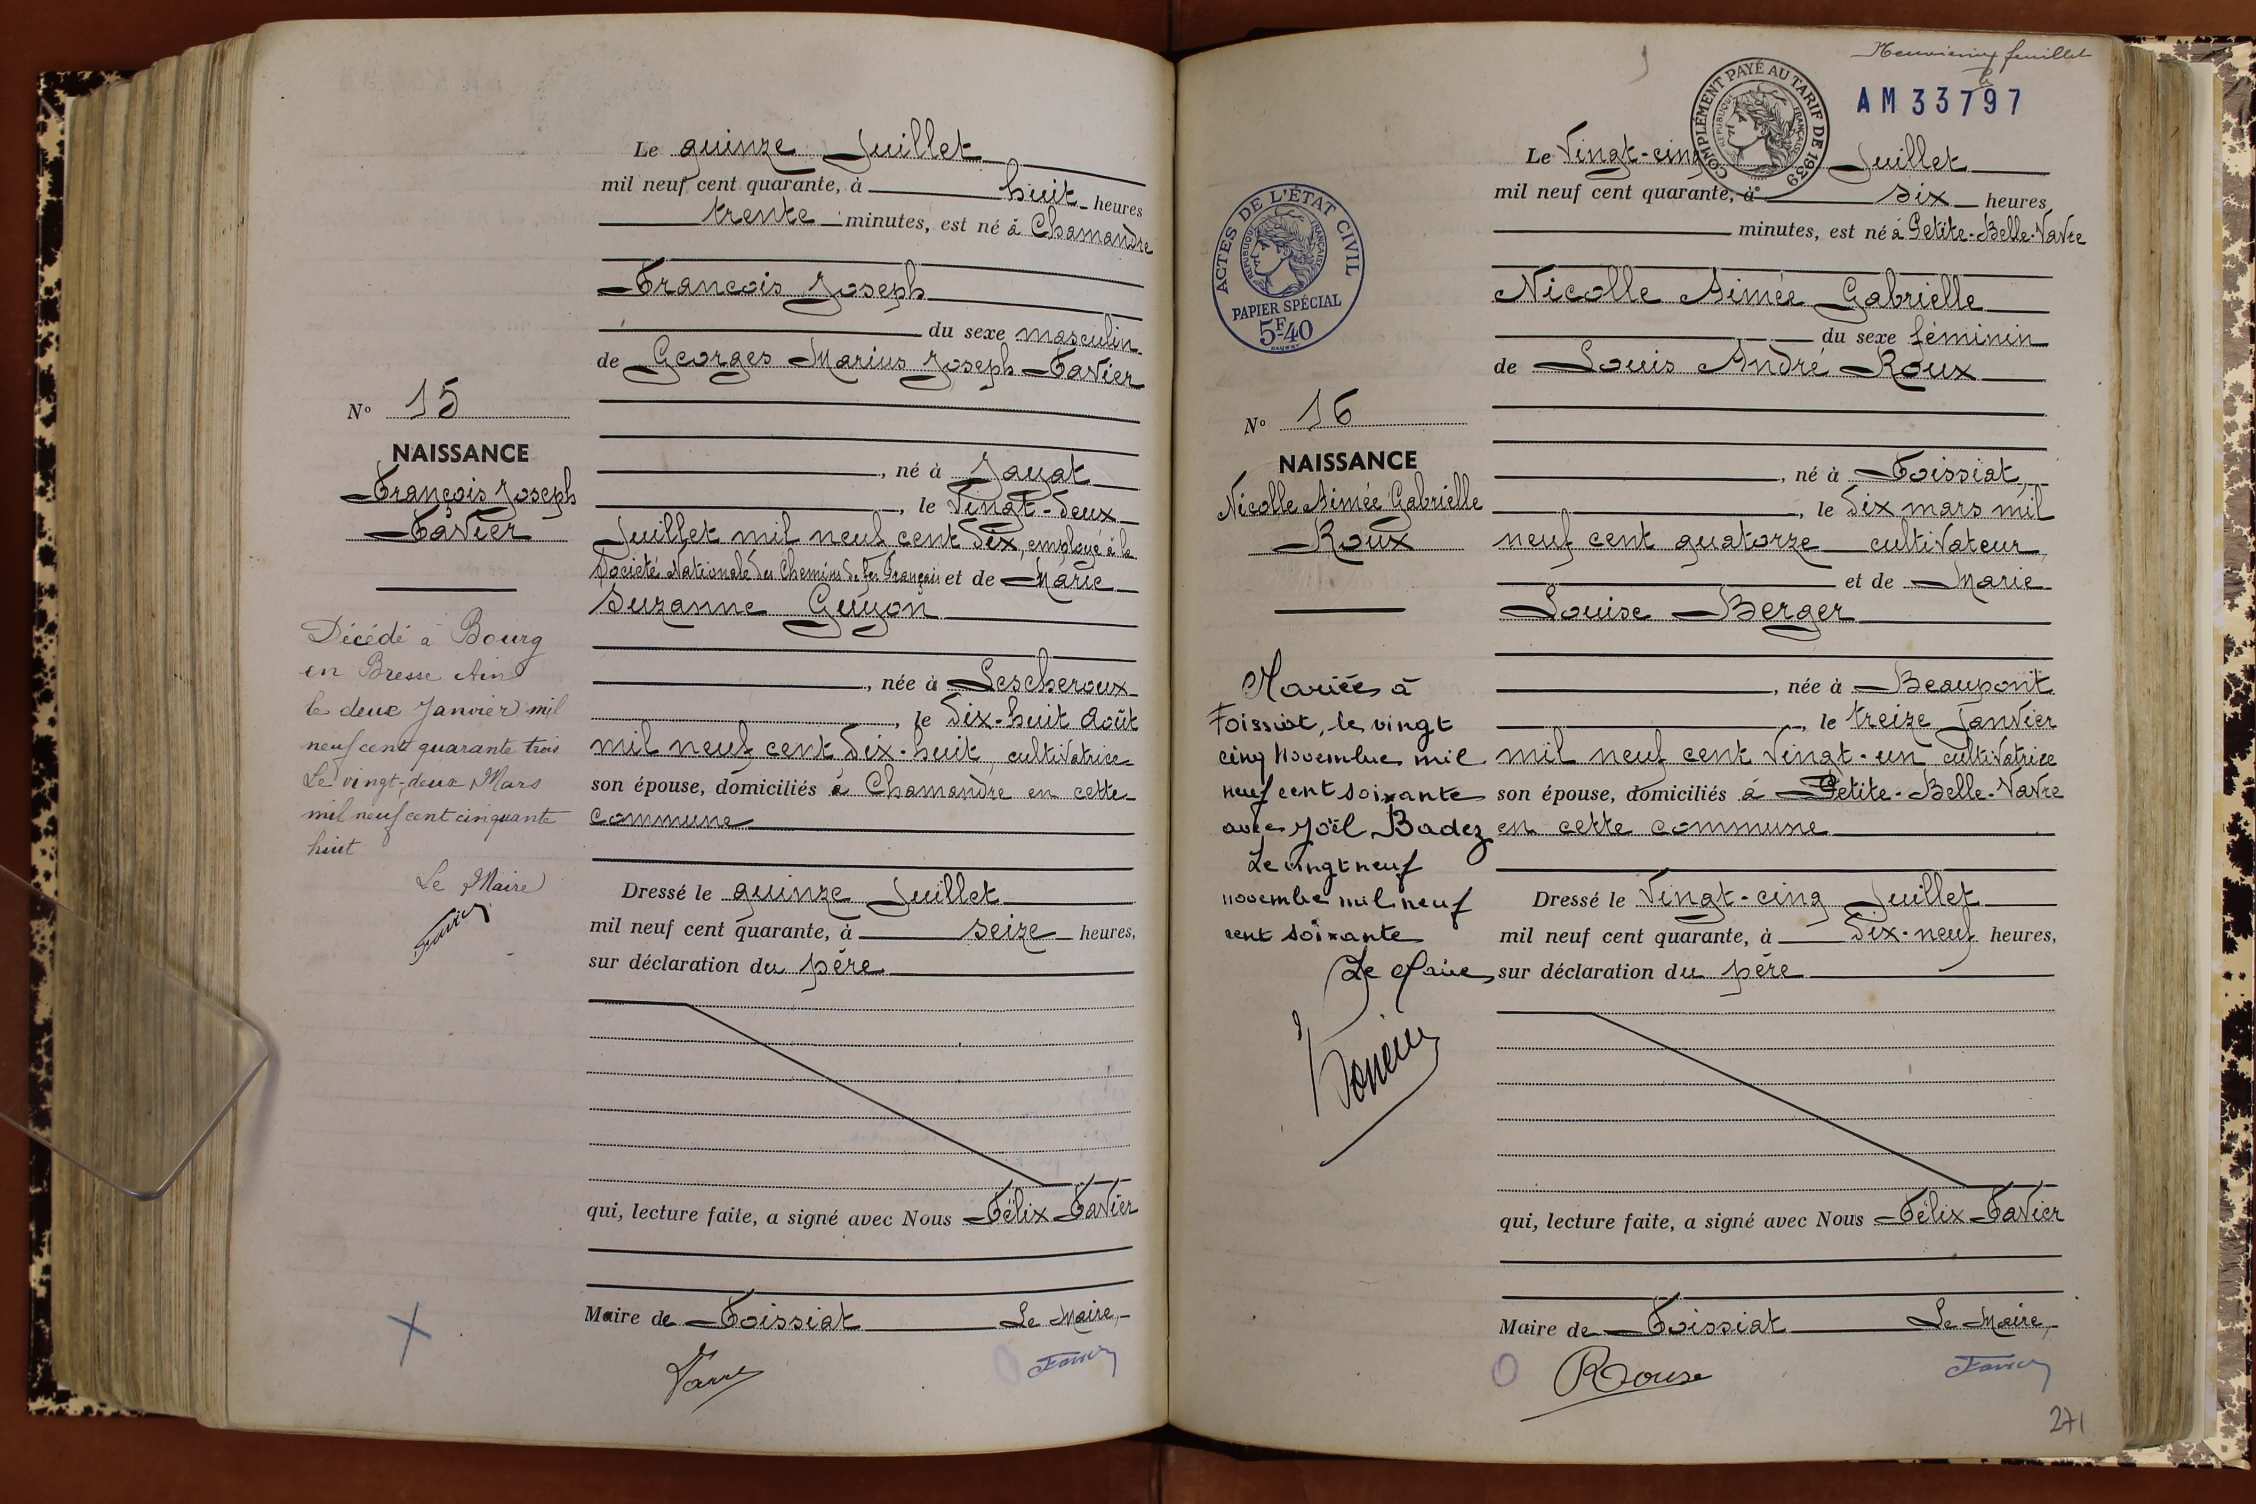 Le quinze Juillet
mil neuf cent quarante, à huit heures
trente minutes, est né à Chamandre
Francois Joseph
du sexe masculin
de Georges Marius Joseph Favier
N° 15
NAISSANCE
François Joseph
Favier
, né à Jayat
, le Vingt-deux
Juillet mil neuf cent dix, employé à la
Société Nationale des Chemins de fer Français et de Marie
Suzanne Guyon
, née à Lescheroux
, le dix-huit Août
mil neuf cent dix-huit, cultivatrice
son épouse, domiciliés à Chamandre en cette
commune
Décédé à Bourg
en Bresse Ain
le deux Janvier mil
neuf cent quarante trois
Le vingt-deux Mars
mil neuf cent cinquante
huit
Le Maire
Dressé le quinze Juillet
mil neuf cent quarante, à seize heures,
sur déclaration du père
qui, lecture faite, a signé avec Nous Félix Favier
Maire de Foissiat Le Maire,
feuillet
AM 33797
COMPLÉMENT PAYÉ AU TARIF DE 1939
RÉPUBLIQUE FRANÇAISE
Le Vingt-cinq Juillet
mil neuf cent quarante, à six heures
minutes, est né à Petite-Belle-Vavre
ACTES DE L'ÉTAT CIVIL
RÉPUBLIQUE FRANÇAISE
PAPIER SPÉCIAL
5F40
Nicolle Aimée Gabrielle
du sexe féminin
de Louis André Roux
N° 16
NAISSANCE
Nicolle Aimée Gabrielle
Roux
, né à Foissiat
, le dix mars mil
neuf cent quatorze cultivateur
et de Marie
Louise Berger
, née à Beaupont
, le treize Janvier
mil neuf cent vingt-un cultivatrice
son épouse, domiciliés à Petite-Belle-Vavre
en cette commune
Mariée à
Foissiat, le vingt
cinq Novembre mil
neuf cent soixante
avec Joël Badez
Le vingt neuf
novembre mil neuf
cent soixante
Le Maire
Dressé le Vingt-cinq Juillet
mil neuf cent quarante, à dix-neuf heures,
sur déclaration du père
qui, lecture faite, a signé avec Nous Félix Favier
Maire de Foissiat Le Maire,
271